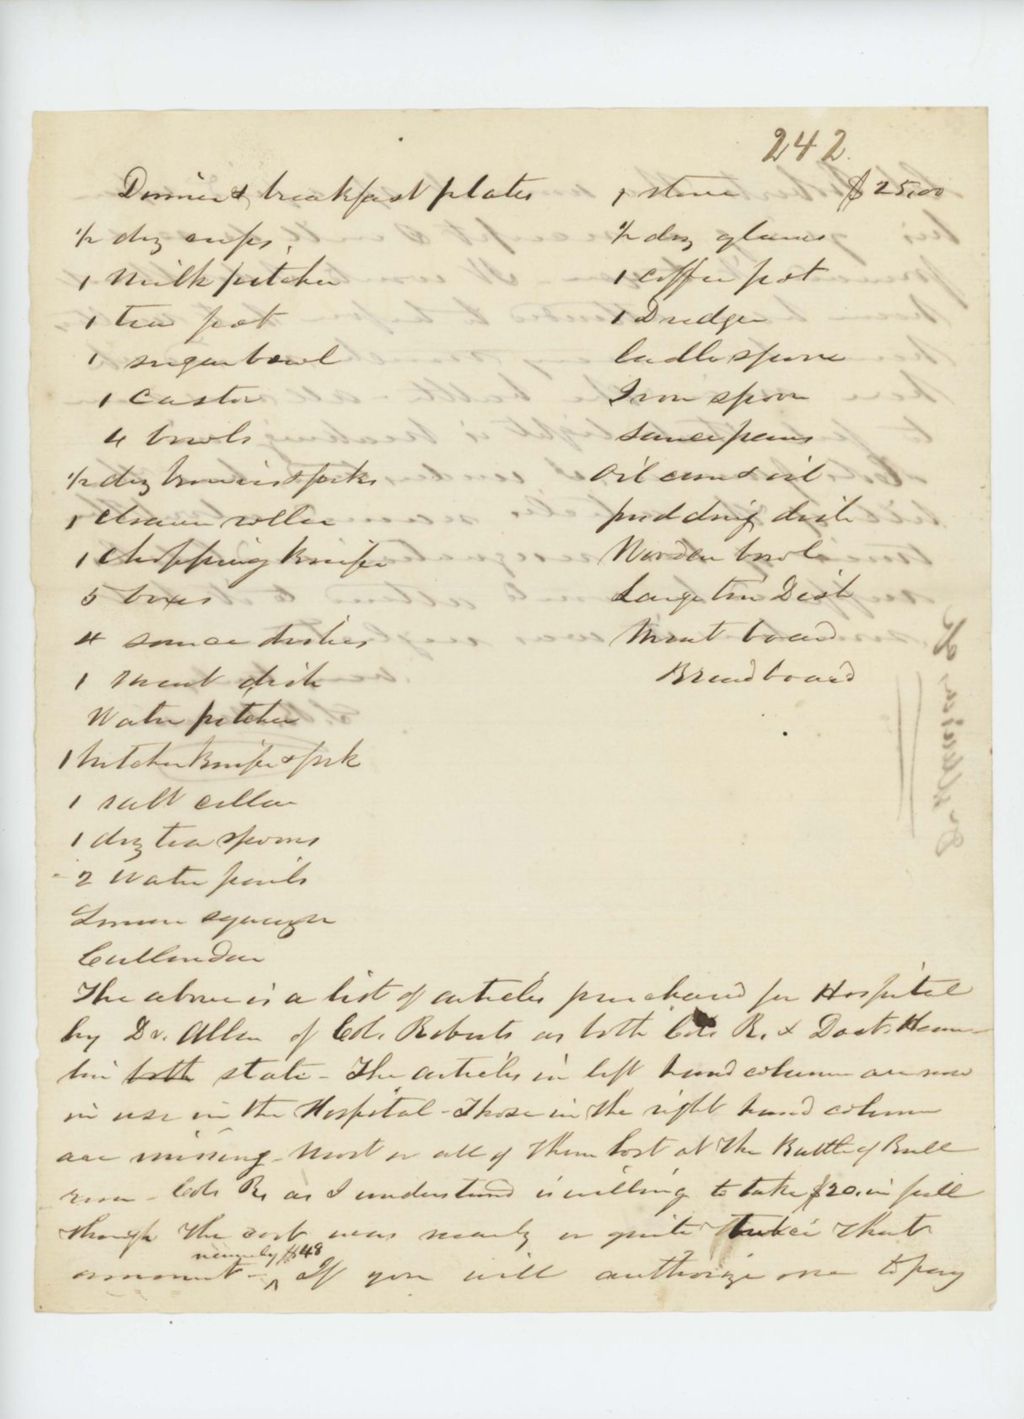 242.
Dinner & breakfast plates
1/2 doz cups,
1 Milk pitcher
1 tea pot
1 sugar bowl
1 Castor
4 bowls
1/2 doz knives & forks
1 roller
1 Chopping knife
5 boxes
4 sauce dishes
1 meat dish
Water pitcher
1 butcher knife & fork
1 salt cellar
1 doz tea spoons
2 Water pails
Lemon squeezer
Cullender
1 stove $25.00
1/2 doz glasses
1 coffee pot
1 Dredger
ladle spoon
Iron spoon
sauce pans
Oil can & oil
pudding dish
Wooden bowl
Large tin Dish
Meat board
Bread board
The above is a list of articles purchased for Hospital
by Dr. Allen of Col. Roberts as both Col. R. & Doct. Ham-
lin both state - The articles in left hand column are now
in use in the Hospital - Those in the right hand column
are missing - Most or all of them lost at the Battle of Bull
run - Col. R. as I understand is willing to take $20. in full
though the cost was nearly or quite that
amount - namely $48 If you will authorize me to pay